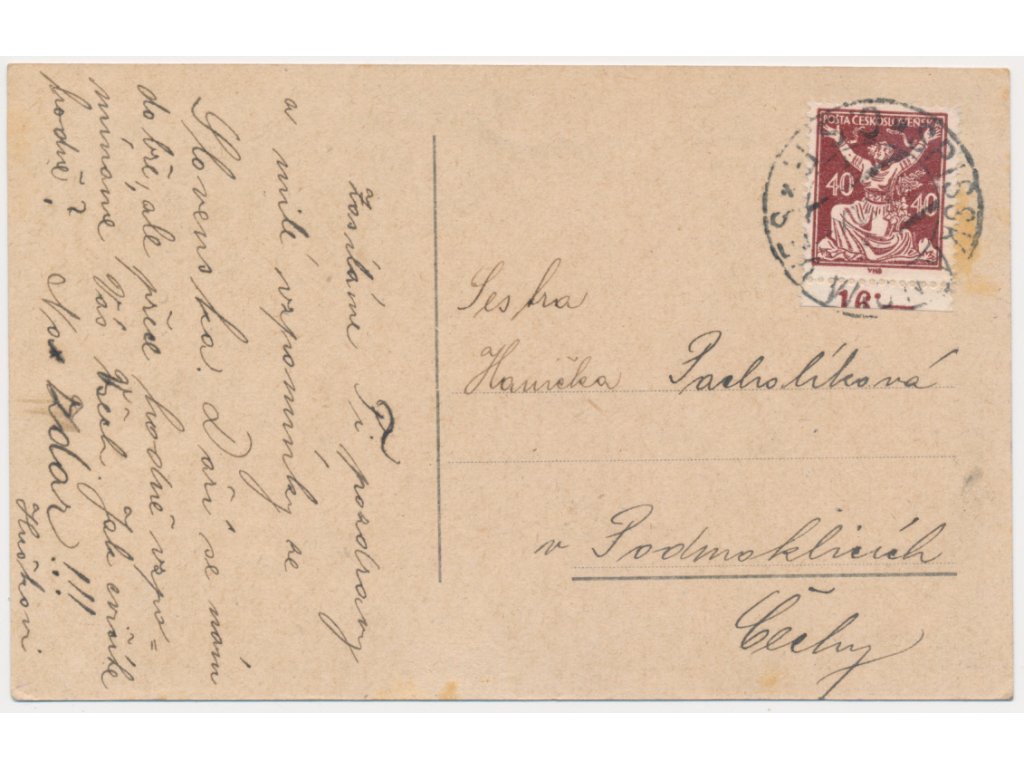 Zasíláme Ti pozdravy
a milé vzpomínky ze
Slovenska. Daří se nám
dobře, ale přece hodně vzpo=
mínáme Vás Všech. Jak cvičíte
hodně?
Na Zdar!!!
Huškovi
POŠTA ČESKOSLOVENSKÁ
40 40
Sestra
Hanička Pacholíková
v Podmoklicích
Čechy